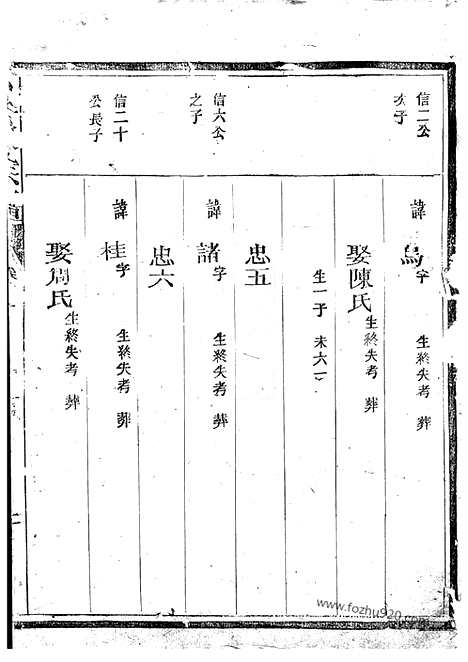 信二公
次子
諱烏字 生終失考 葬
娶陳氏 生終失考 葬
生一子 未六一
忠五
信六公
之子
諱諸字 生終失考 葬
忠六
信二十
公長子
諱桂字 生終失考 葬
娶周氏 生終失考 葬
www.fozhu920.com